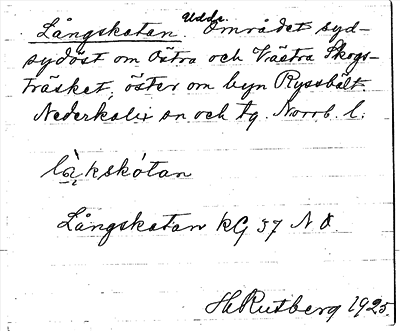 Långskatan. Udde. Området syd-
sydöst om Östra och Västra Skogs-
träsket, öster om byn Ryssbält.
Nederkalix sn och tg. Norrb. l.
lå̀ŋkskó̀tan
Långskatan KG 37 N.O.
H. Rutberg 1925.